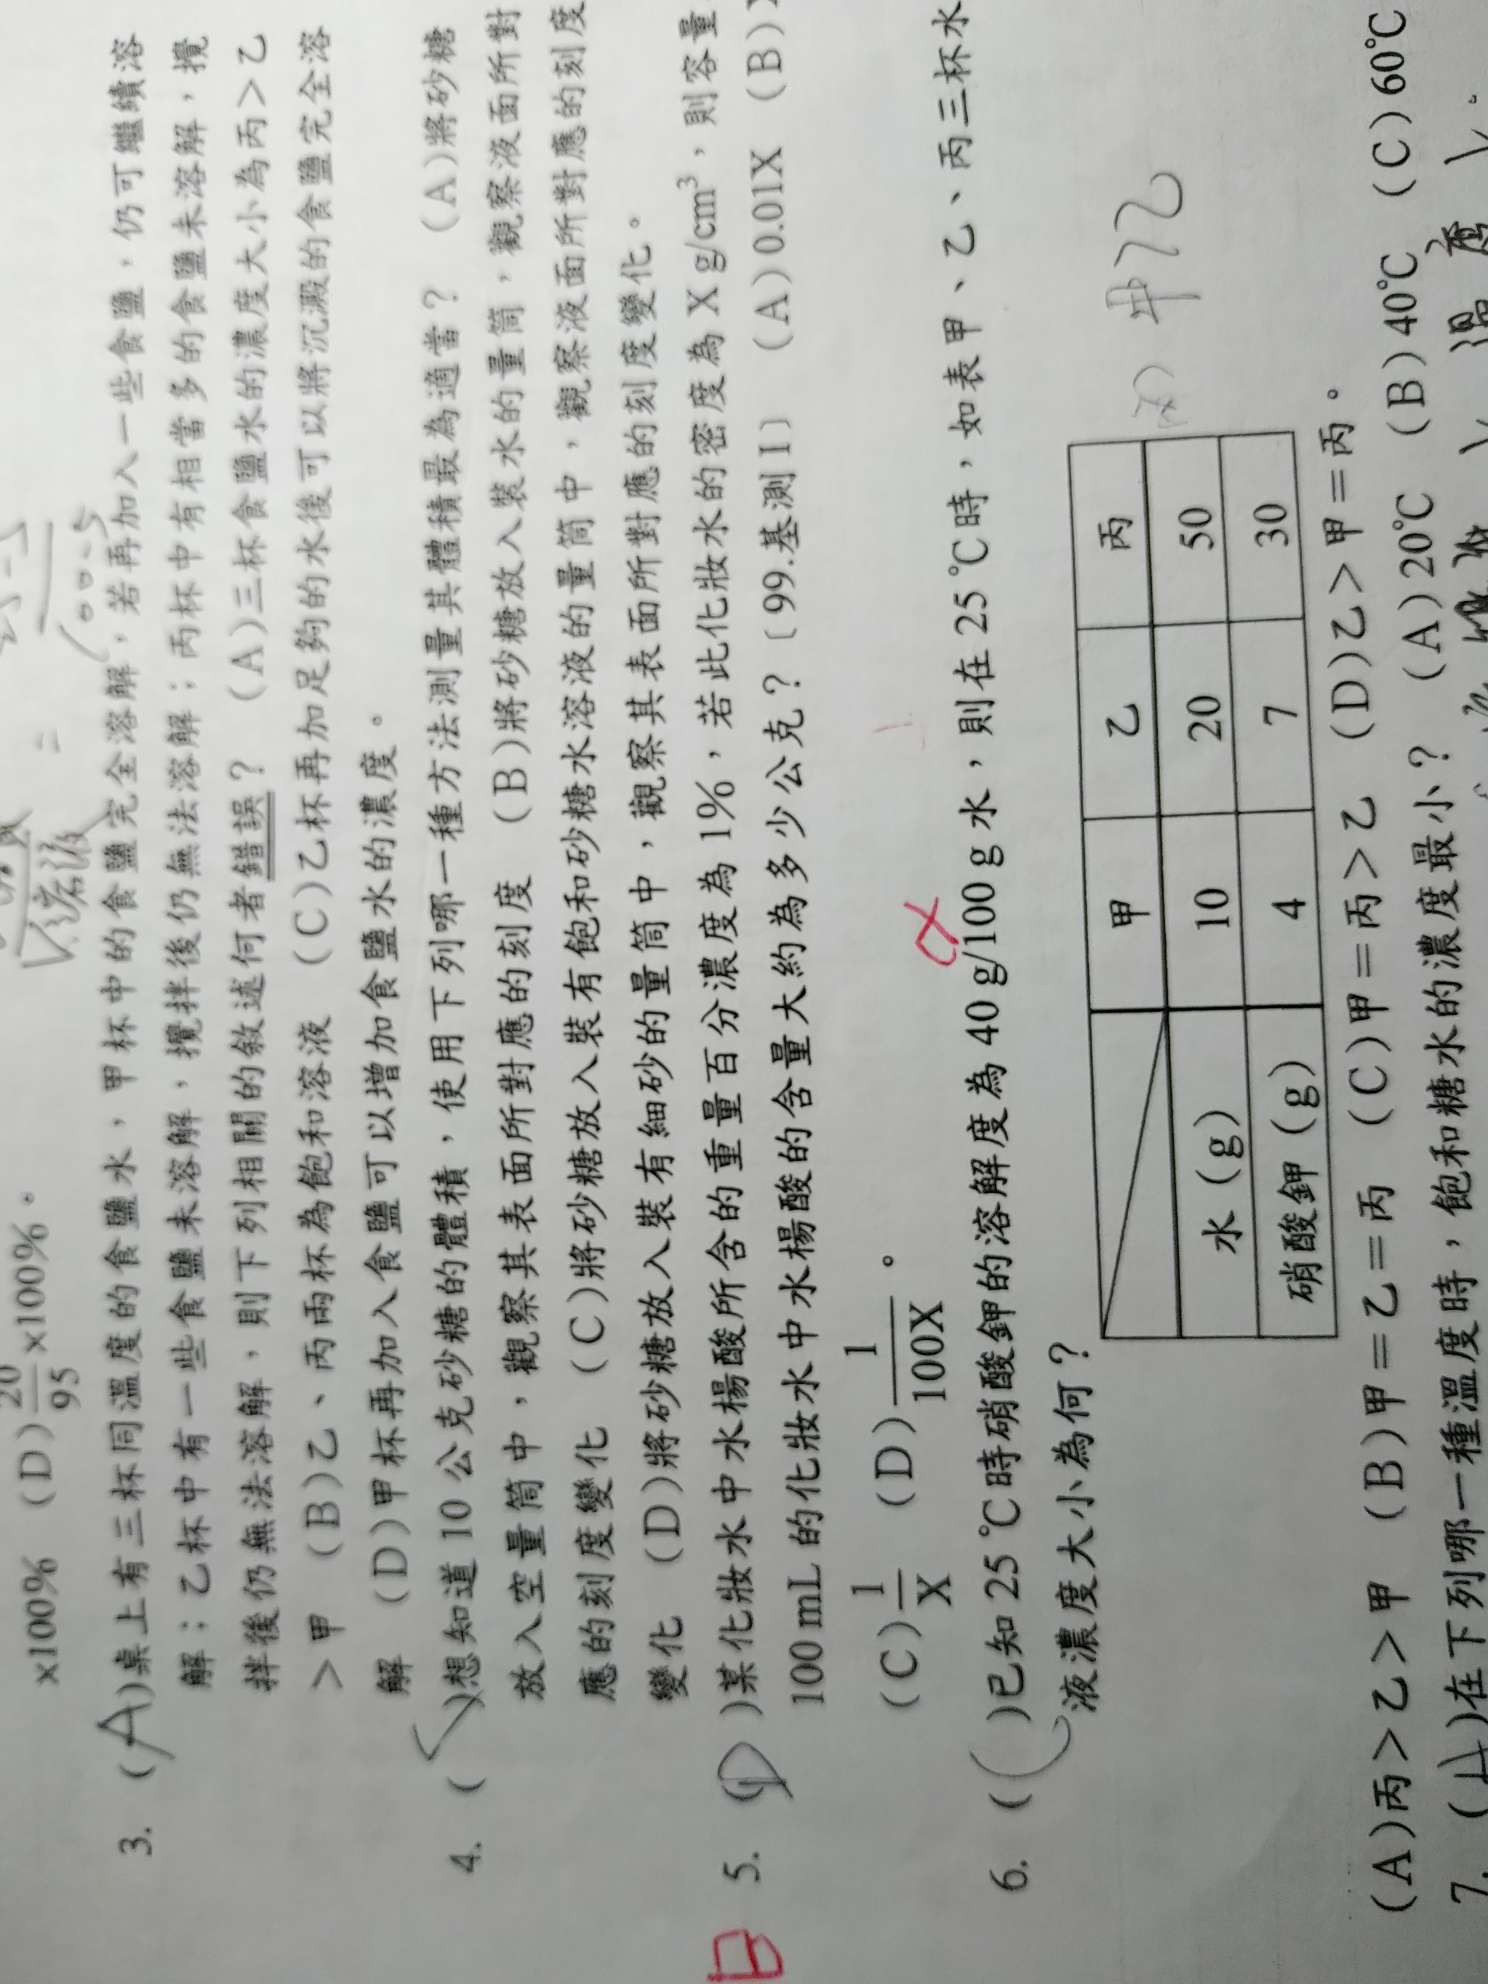 ×100%　(D) 20/95 ×100%。
溶液
3. (A)桌上有三杯同溫度的食鹽水，甲杯中的食鹽完全溶解，若再加入一些食鹽，仍可繼續溶
解；乙杯中有一些食鹽未溶解，攪拌後仍無法溶解；丙杯中有相當多的食鹽未溶解，攪
拌後仍無法溶解，則下列相關的敘述何者錯誤？　(A)三杯食鹽水的濃度大小為丙＞乙
＞甲　(B)乙、丙兩杯為飽和溶液　(C)乙杯再加足夠的水後可以將沉澱的食鹽完全溶
解　(D)甲杯再加入食鹽可以增加食鹽水的濃度。
4. ( )想知道 10 公克砂糖的體積，使用下列哪一種方法測量其體積最為適當？　(A)將砂糖
放入空量筒中，觀察其表面所對應的刻度　(B)將砂糖放入裝水的量筒，觀察液面所對
應的刻度變化　(C)將砂糖放入裝有飽和砂糖水溶液的量筒中，觀察液面所對應的刻度
變化　(D)將砂糖放入裝有細砂的量筒中，觀察其表面所對應的刻度變化。
B 5. (D)某化妝水中水楊酸所含的重量百分濃度為 1%，若此化妝水的密度為 X g/cm³，則容量
100 mL 的化妝水中水楊酸的含量大約為多少公克？〔99.基測 I〕　(A) 0.01X　(B)
(C) 1/X　(D) 1/100X。
6. (C)已知 25℃時硝酸鉀的溶解度為 40 g/100 g 水，則在 25℃時，如表甲、乙、丙三杯水
液濃度大小為何？
甲　乙　丙
水（g）　10　20　50
硝酸鉀（g）　4　7　30
丙 甲 乙
(A)丙＞乙＞甲　(B)甲＝乙＝丙　(C)甲＝丙＞乙　(D)乙＞甲＝丙。
7. (A)在下列哪一種溫度時，飽和糖水的濃度最小？　(A) 20℃　(B) 40℃　(C) 60℃
溫度